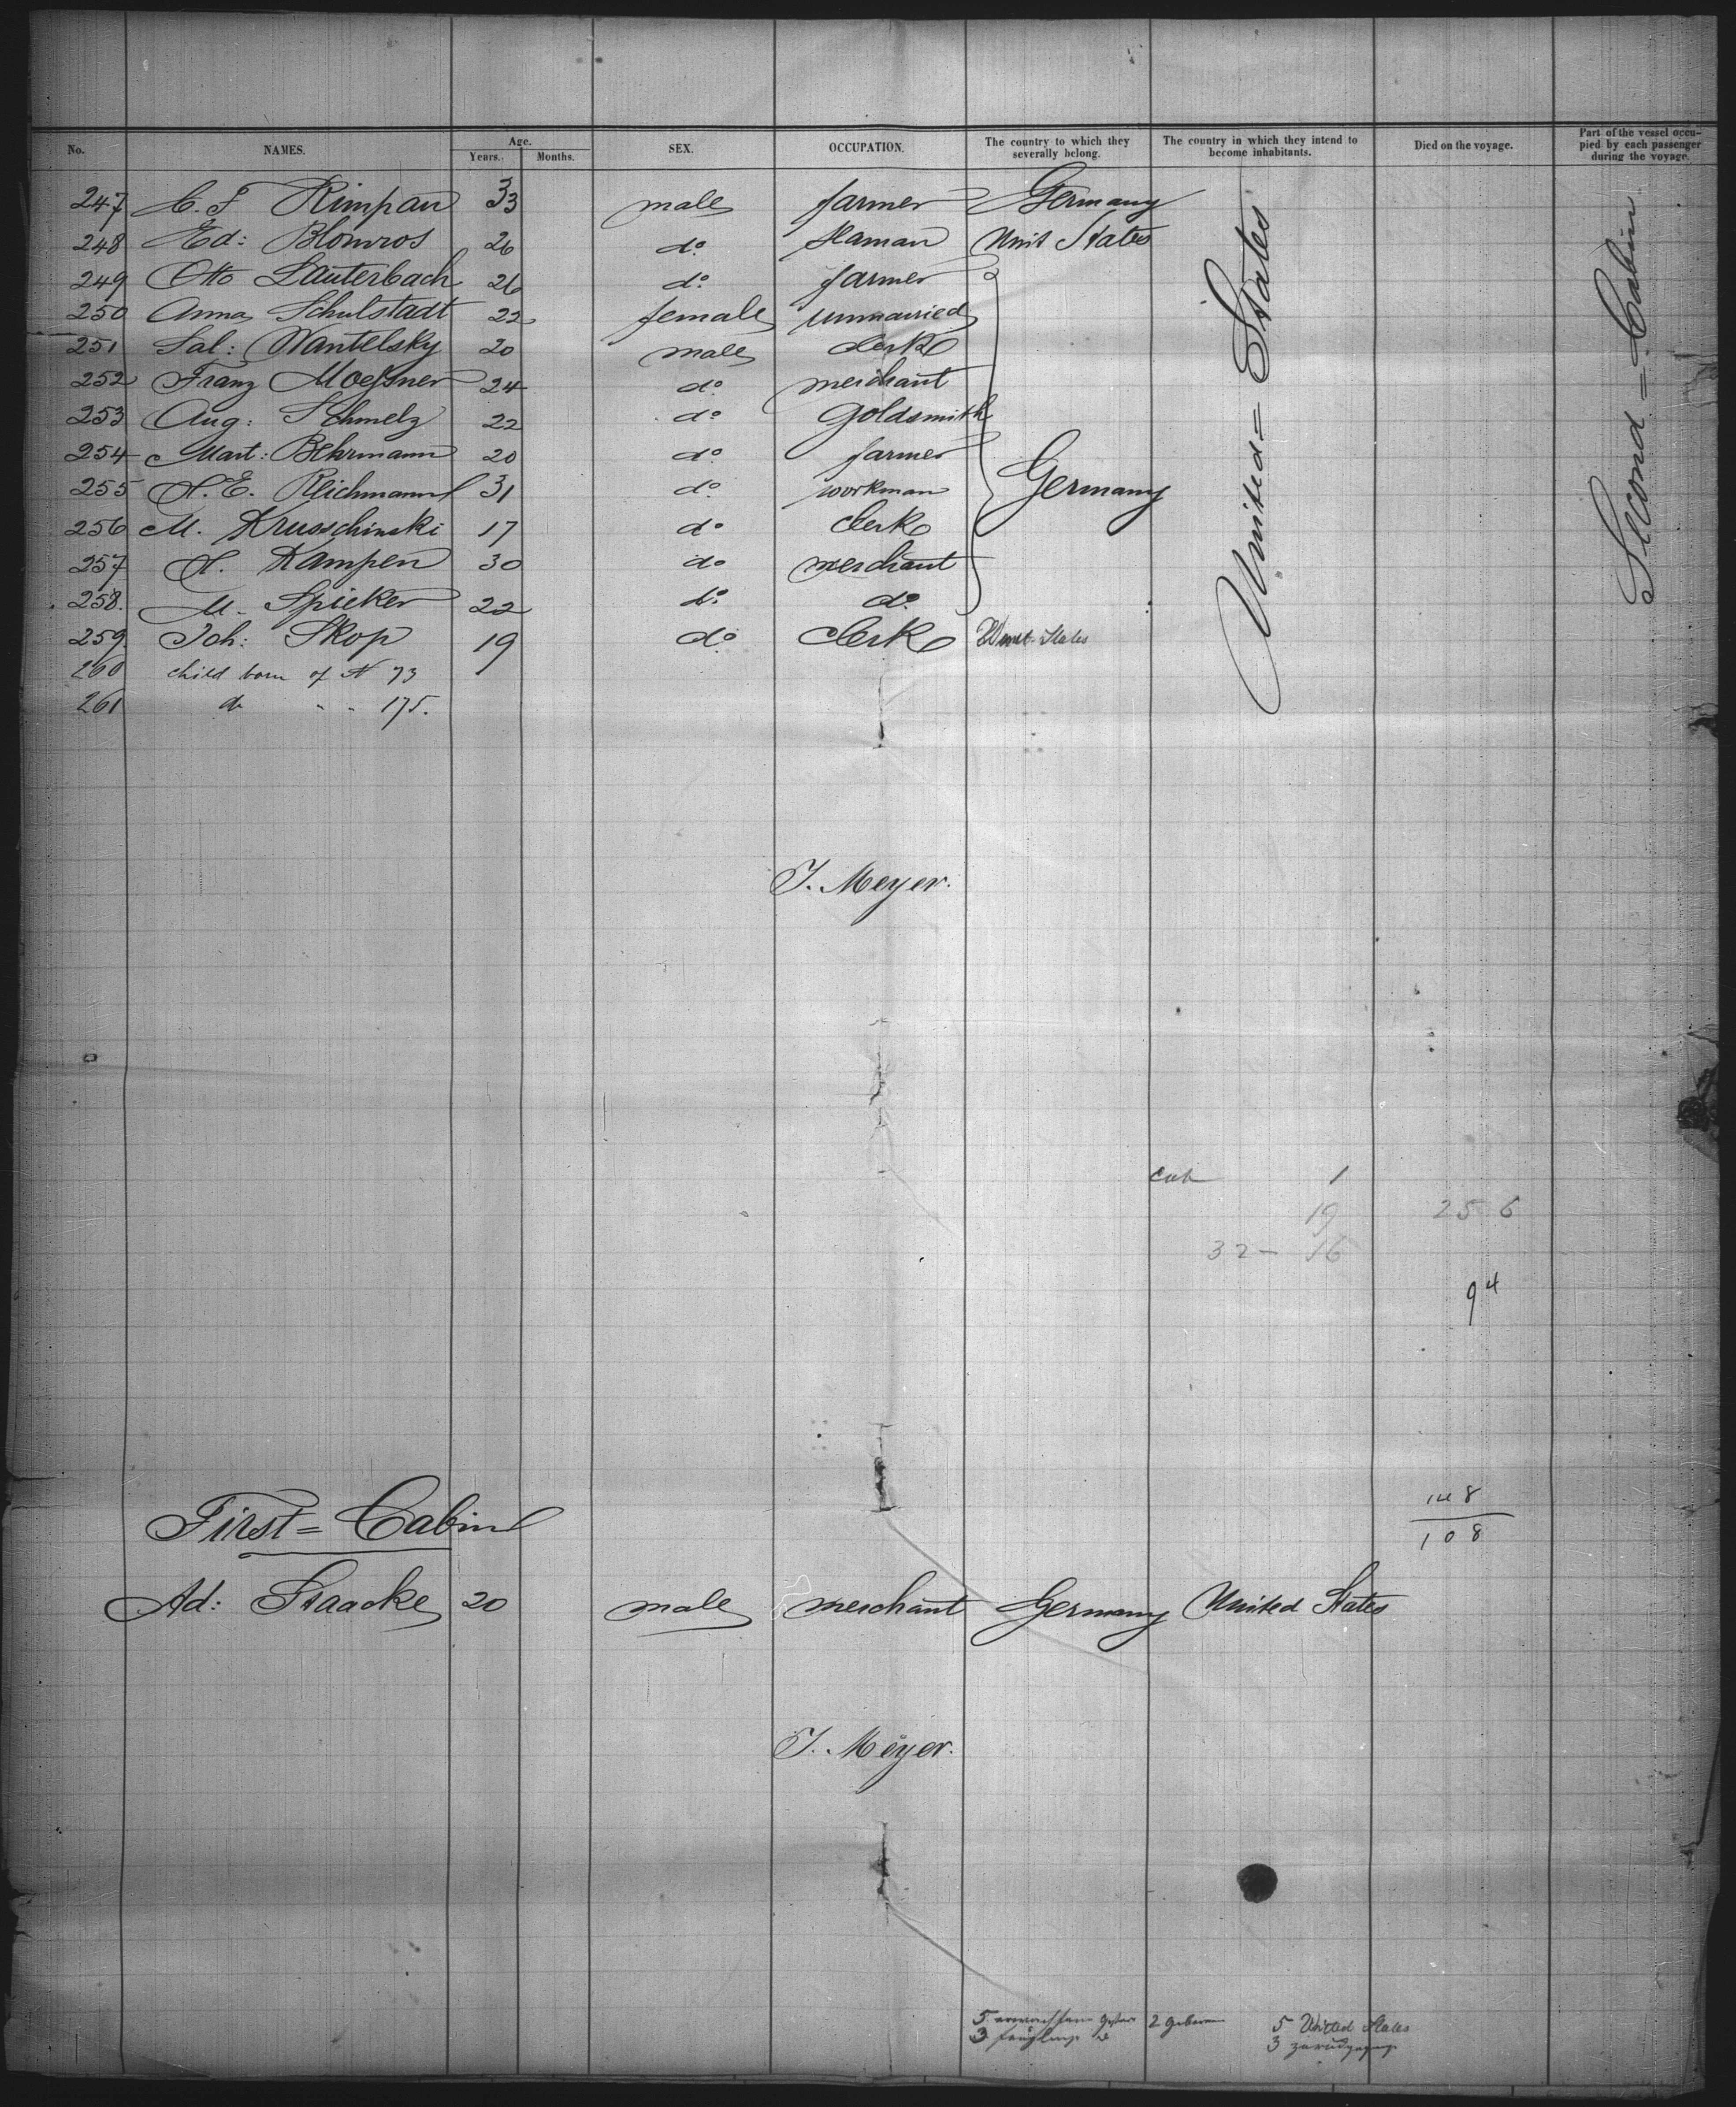 No. NAMES. Age. Years. Months. SEX. OCCUPATION. The country to which they severally belong. The country in which they intend to become inhabitants. Died on the voyage. Part of the vessel occupied by each passenger during the voyage.
247 C. F Rimpau 33 male farmer Germany
248 Ed: Blomros 26 do. seaman Unit States
249 Otto Lauterbach 26 do. farmer
250 Anna Schulstadt 22 female unmarried
251 Sal: Wantelsky 20 male clerk
252 Franz Moeßner 24 do. merchant
253 Aug: Schmelz 22 do goldsmith
254 Mart: Behrmann 20 do. farmer
255 H. E. Reichmann 31 do. workman Germany
256 M. Krusschinski 17 do clerk
257 H. Kampen 30 do merchant
258. M. Spieker 22 do. do.
259. Joh: Skop 19 do. clerk Unit States
260 child born of N 73
261 do " " 175.
United = States
Second = Cabin
J. Meyer.
cab 1
19 25 6
32 - 16
94
148
108
First = Cabin
Ad: Staacke 20 male merchant Germany United States
J. Meyer.
5 2 geboren 5 United States
3 3